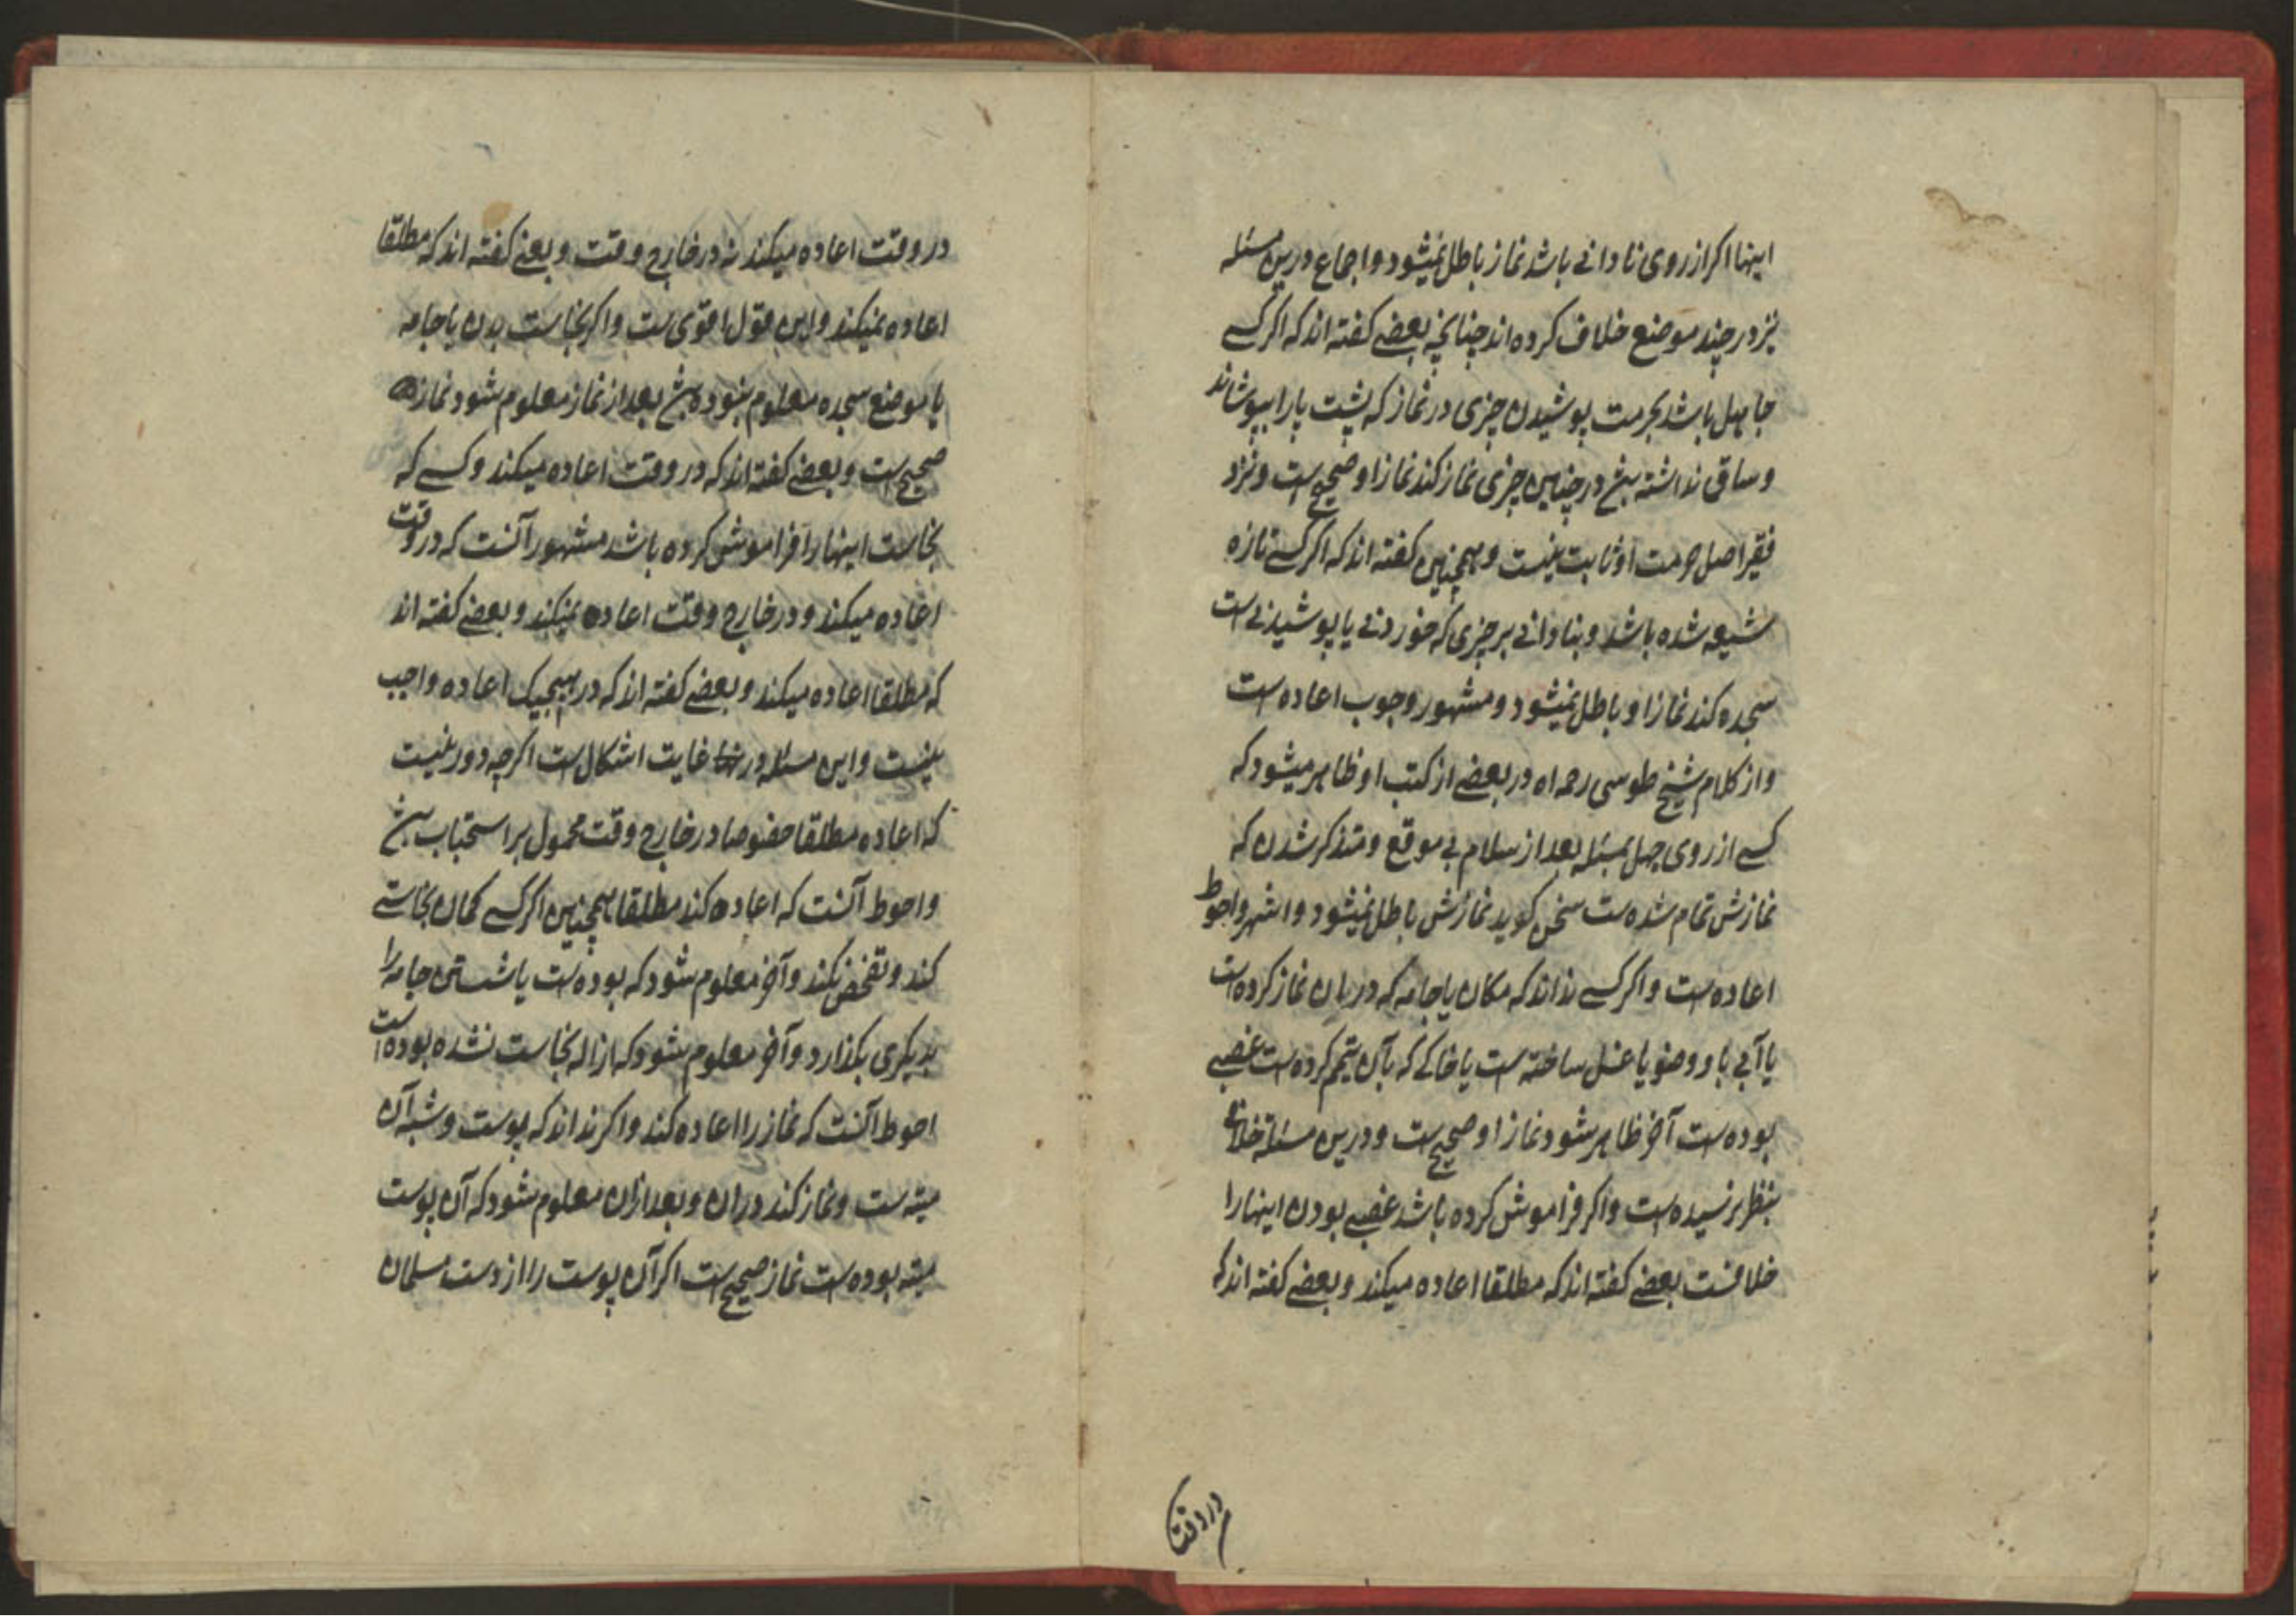 اینها اکر از روی نادانی باشد نماز باطل نمیشود و اجماع درین مسئله
نیز در چند موضع خلاف کرده اند چنانچه بعضی کفته اند که اکر کسی
جاهل باشد بحرمت پوشیدن چیزی در نماز که پشت پا را بپوشاند
و ساق نداشته بش در چنین چیزی نماز کند نماز او صحیح است و نزد
فقیر اصل حرمت او ثابت نیست و همچنین کفته اند که اکر کسی تازه
شیعه شده باشد و بنادانی بر چیزی که خوردنی یا پوشیدنی است
سجده کند نماز او باطل نمیشود و مشهور وجوب اعاده است
و از کلام شیخ طوسی رحمه اه در بعضی از کتب او ظاهر میشود که
کسی از روی جهل بمسئله بعد از سلام بی موقع و متذکر شدن که
نمازش تمام شده است سخن کوید نمازش باطل نمیشود و اشهر و احوط
اعاده است و اکر کسی نداند که مکان یا جامه که در ان نماز کرده است
یا آبی باو وضو یا غسل ساخته است یا خاکی که بآن تیمم کرده است غصبی
بوده است آخر ظاهر شود نماز او صحیح است و درین مسئله خلافی
بنظر نرسیده است و اکر فراموش کرده باشد غصبی بودن اینها را
خلافست بعضی کفته اند که مطلقا اعاده میکند و بعضی کفته اند که
در وقت
در وقت اعاده میکند نه در خارج وقت و بعضی کفته اند که مطلقا
اعاده نمیکند و این قول اقوی است و اکر نجاست بدن یا جامه
یا موضع سجده معلوم نبوده بش بعد از نماز معلوم شود نماز
صحیح است و بعضی کفته اند که در وقت اعاده میکند و کسی که
نجاست اینها را فراموش کرده باشد مشهور آنست که در وقت
اعاده میکند و در خارج وقت اعاده نمیکند و بعضی کفته اند
که مطلقا اعاده میکند و بعضی کفته اند که در هیچیک اعاده واجب
نیست و این مسئله در غایت اشکال است اکرچه دور نیست
که اعاده مطلقا خصوصا در خارج وقت محمول بر استحباب بش
و احوط آنست که اعاده کند مطلقا همچنین اکر کسی کمان نجاستی
کند و تفحص نکند و آخر معلوم شود که بوده است یا شستن جامه را
بدیکری بکذارد و آخر معلوم شود که ازاله نجاست نشده بوده است
احوط آنست که نماز را اعاده کند و اکر نداند که پوست و شبه آن
میته است و نماز کند در ان و بعد ازان معلوم شود که آن پوست
میته بوده است نماز صحیح است اکر آن پوست را از دست مسلمان